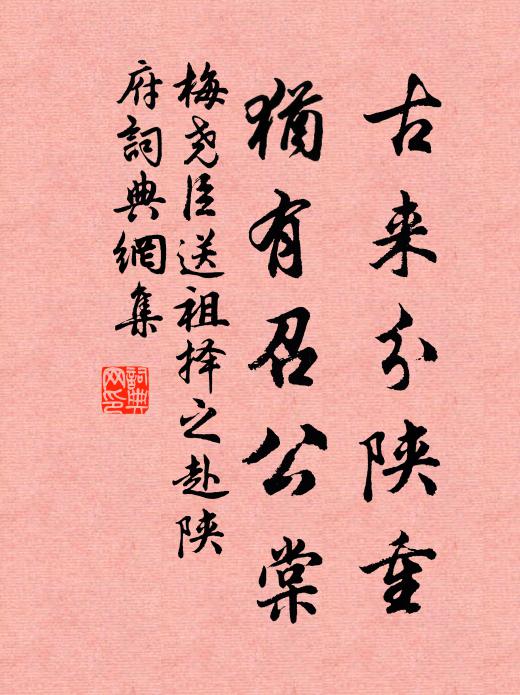 古来分陕重
犹有召公棠
梅尧臣送祖择之赴陕
府詞典網集
詞典
网印